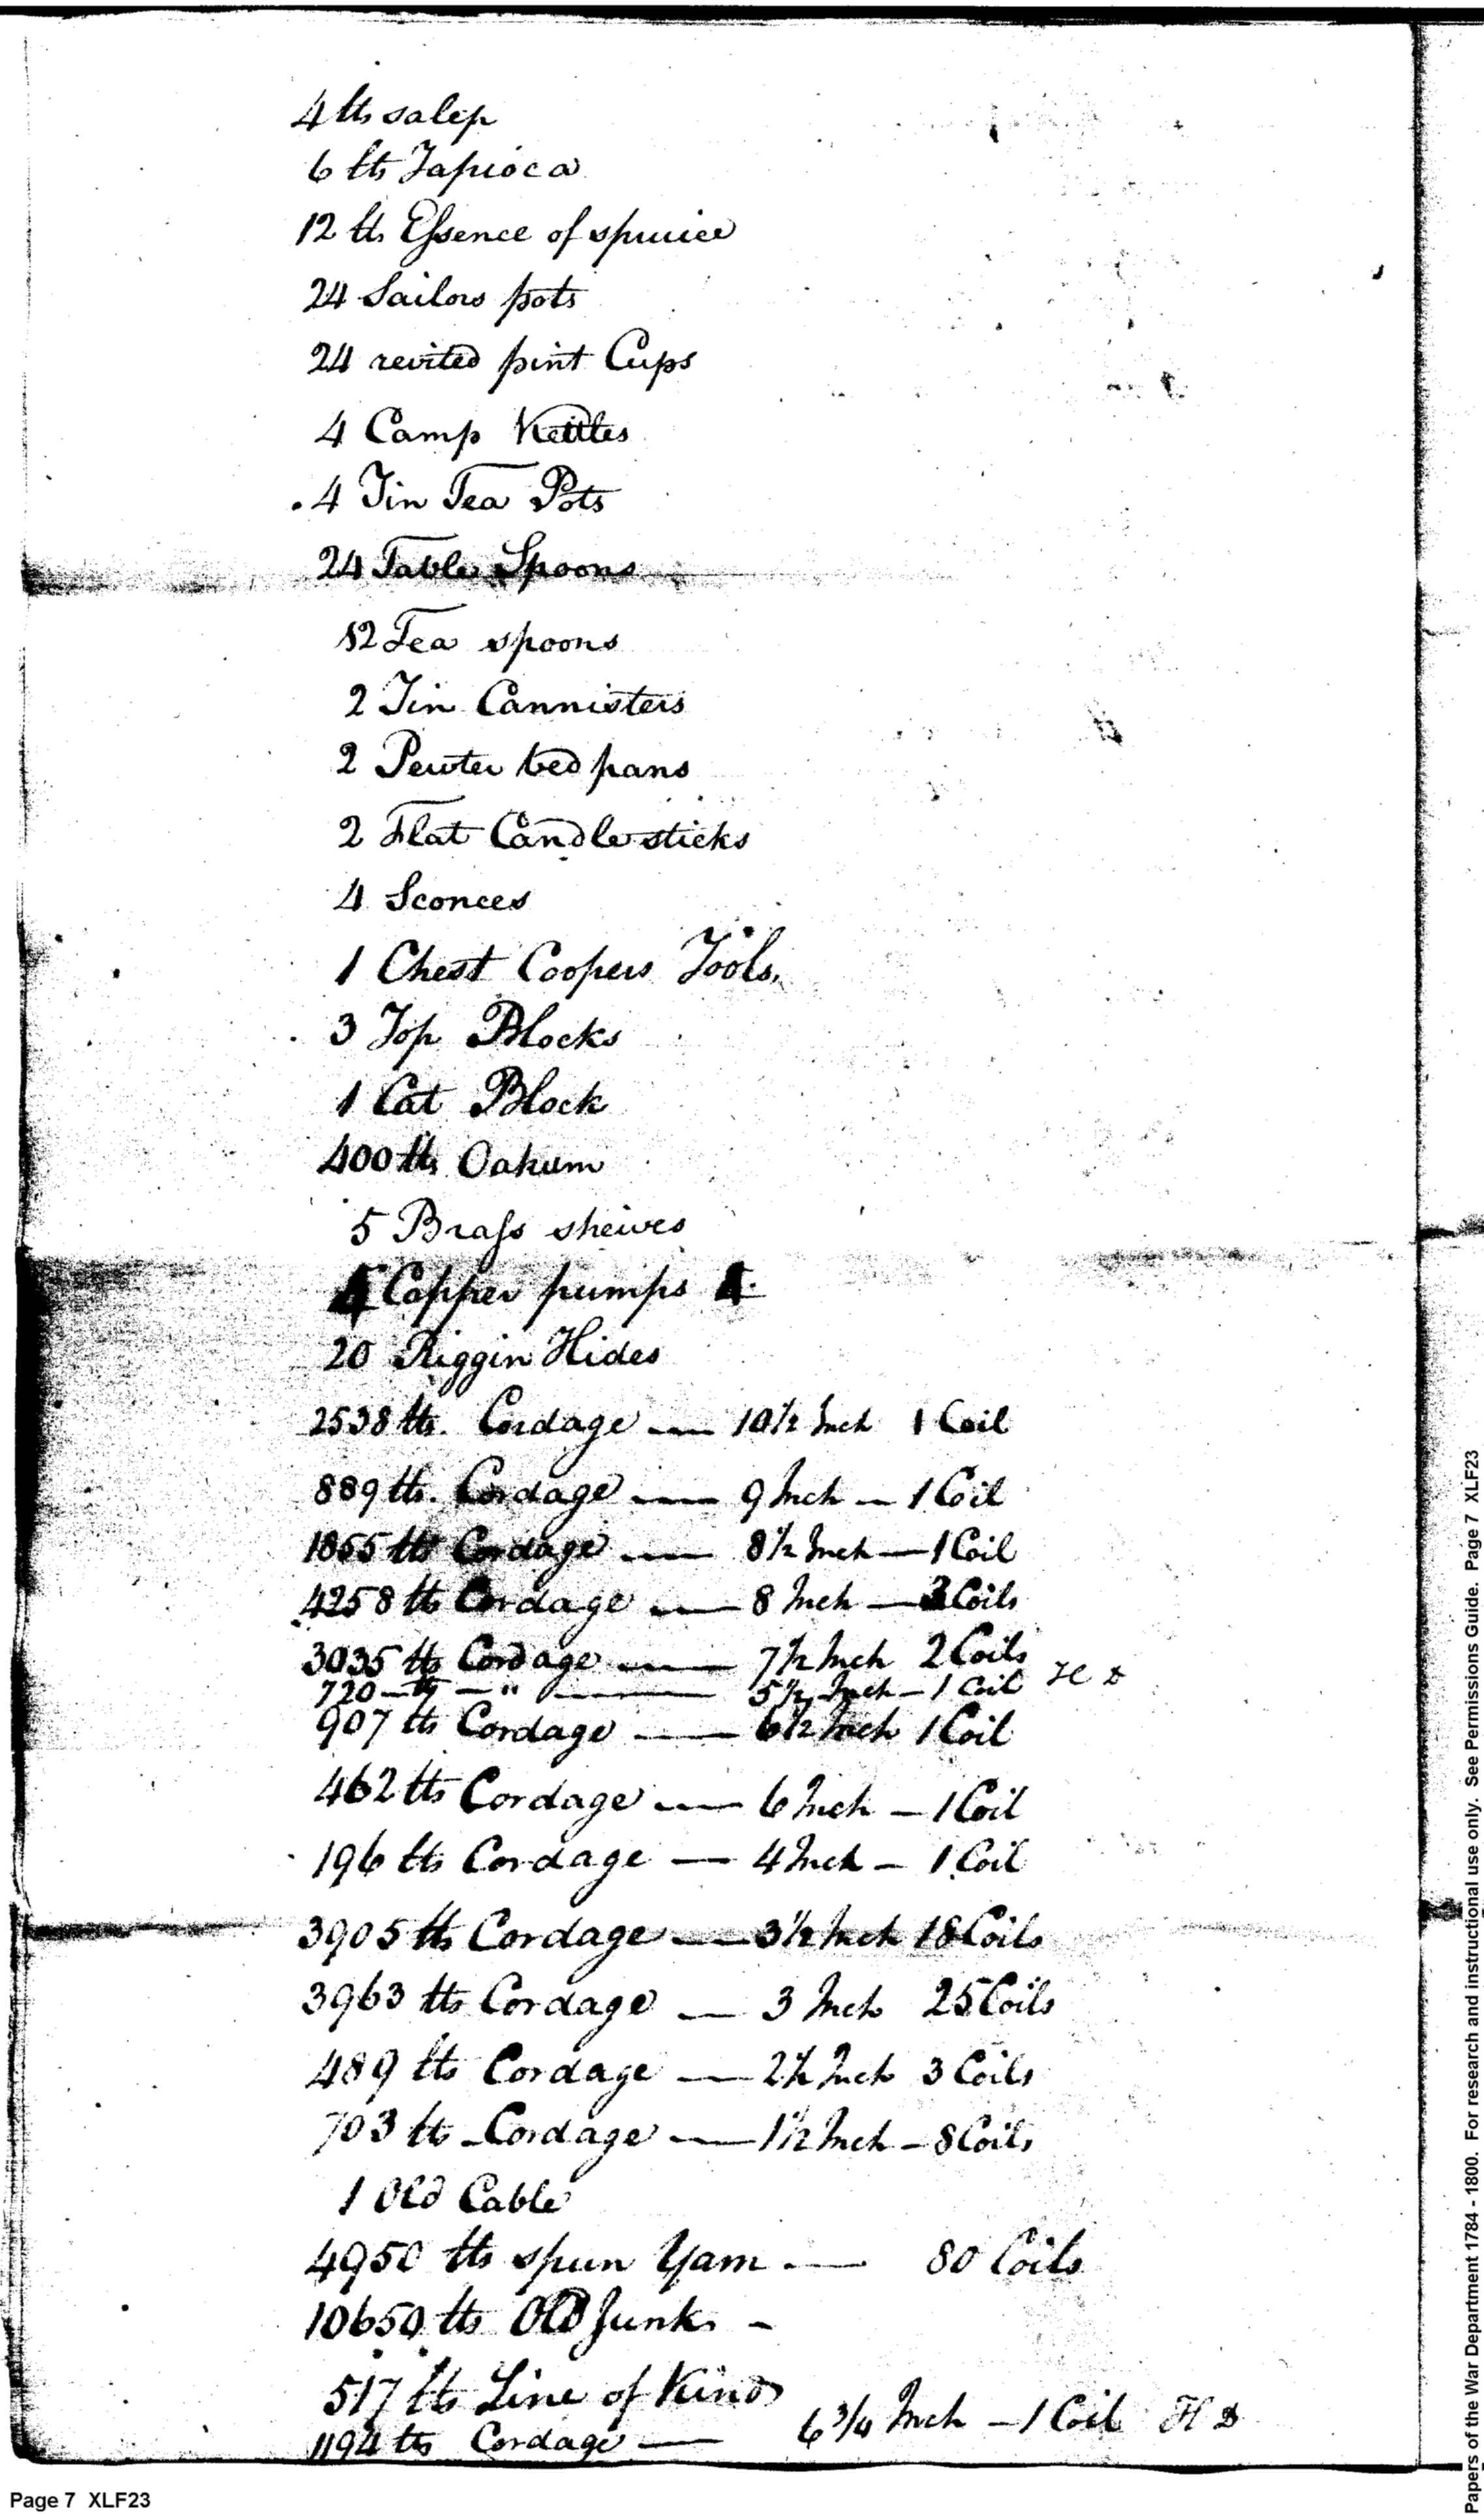 4 lbs salep
6 lbs Tapioca
12 lbs Essence of spruice
24 Sailors pots
24 revited pint Cups
4 Camp Kettles
4 Tin Tea Pots
24 Table Spoons
12 Tea spoons
2 Tin Cannisters
2 Pewter bed pans
2 Flat Candlesticks
4 Sconces
1 Chest Coopers Tools,
3 Top Blocks
1 Cat Block
400 lbs Oakum
5 Brass sheives
4 Copper pumps 4
20 Riggin Hides
2538 lbs. Cordage — 10 1/2 Inch 1 Coil
889 lbs. Cordage — 9 Inch — 1 Coil
1855 lbs Cordage — 8 1/2 Inch — 1 Coil
4258 lbs Cordage — 8 Inch — 3 Coils
3035 lbs Cordage — 7 1/2 Inch 2 Coils
720 — lbs — " — 5 1/2 Inch — 1 Coil H D
907 lbs Cordage — 6 1/2 Inch 1 Coil
462 lbs Cordage — 6 Inch — 1 Coil
196 lbs Cordage — 4 Inch — 1 Coil
3905 lbs Cordage — 3 1/2 Inch 18 Coils
3963 lbs Cordage — 3 Inch 25 Coils
489 lbs Cordage — 2 1/2 Inch 3 Coils
703 lbs Cordage — 1 1/2 Inch — 8 Coils
1 Old Cable
4950 lbs spun Yarn — 80 Coils
10650 lbs Old Junk —
517 lbs Line of Kinds
1194 lbs Cordage — 6 3/4 Inch — 1 Coil H D
Page 7 XLF23
Papers of the War Department 1784 - 1800. For research and instructional use only. See Permissions Guide. Page 7 XLF23